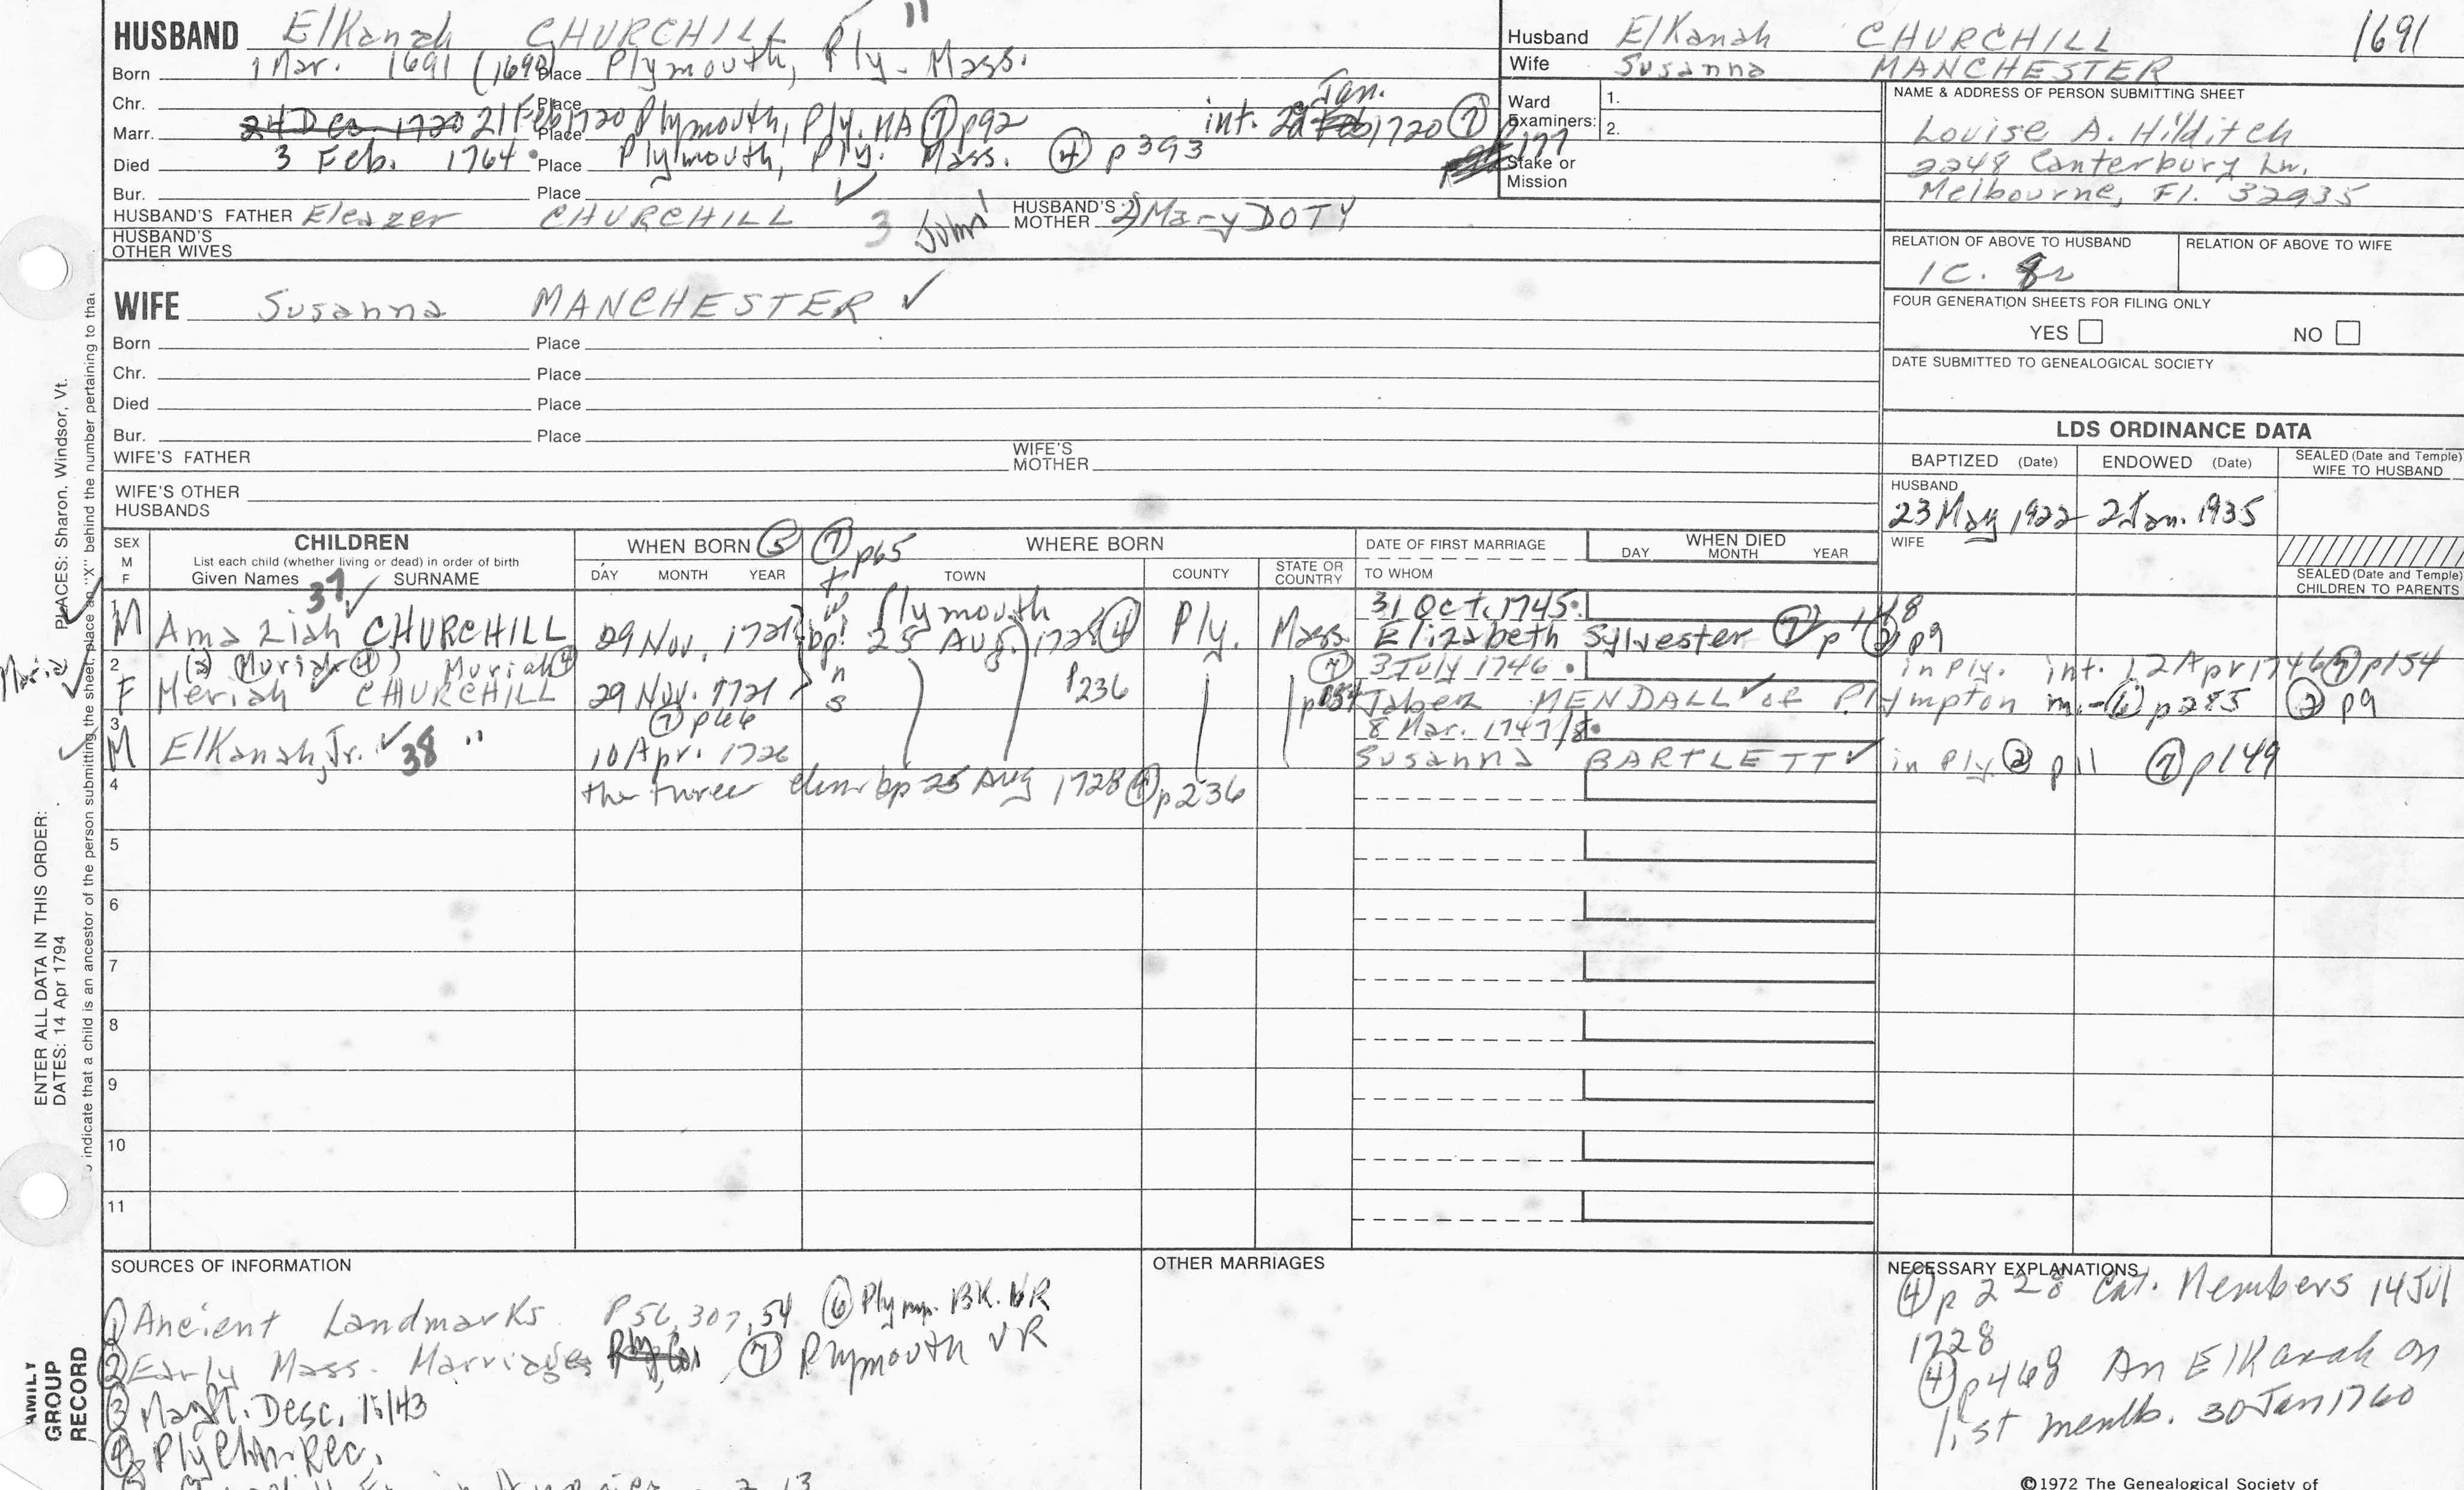 HUSBAND Elkanah CHURCHILL 11
Born 1 Mar. 1691 (1690) Place Plymouth, Ply. Mass.
Chr. Place
Marr. 24 Dec. 1720 21 Feb 1720 Place Plymouth, Ply. MA (7) p92 int. 29 Feb Jan. 1720 (7) p177
Died 3 Feb. 1764 Place Plymouth, Ply. Mass. (4) p393
Bur. Place
HUSBAND'S FATHER Eleazer CHURCHILL 3 John HUSBAND'S MOTHER 2) Mary DOTY
HUSBAND'S OTHER WIVES
Husband Elkanah CHURCHILL 1691
Wife Susanna MANCHESTER
Ward Examiners: 1.
2.
Stake or Mission
NAME & ADDRESS OF PERSON SUBMITTING SHEET
Louise A. Hilditch
2248 Canterbury Ln.
Melbourne, Fl. 32935
RELATION OF ABOVE TO HUSBAND RELATION OF ABOVE TO WIFE
1C. 8r
FOUR GENERATION SHEETS FOR FILING ONLY
YES NO
DATE SUBMITTED TO GENEALOGICAL SOCIETY
WIFE Susanna MANCHESTER ✓
Born Place
Chr. Place
Died Place
Bur. Place
WIFE'S FATHER WIFE'S MOTHER
WIFE'S OTHER HUSBANDS
LDS ORDINANCE DATA
BAPTIZED (Date) ENDOWED (Date) SEALED (Date and Temple) WIFE TO HUSBAND
HUSBAND
23 May 1922 2 Jan. 1935
WIFE
SEALED (Date and Temple) CHILDREN TO PARENTS
SEX M F CHILDREN WHEN BORN (5) (7) p65 WHERE BORN DATE OF FIRST MARRIAGE WHEN DIED
List each child (whether living or dead) in order of birth
Given Names SURNAME DAY MONTH YEAR TOWN COUNTY STATE OR COUNTRY TO WHOM DAY MONTH YEAR
37 ✓
1 Plymouth 31 Oct. 1745
M Amaziah CHURCHILL 29 Nov. 1721 bp. 25 Aug 1728 (4) Ply. Mass. Elizabeth Sylvester (7) p148 (2) p9
twins
2 (2) Muriah (4) Muriah (4) 3 July 1746 in Ply. int. 12 Apr 1746 (7) p154
F Meriah CHURCHILL 29 Nov. 1721 p236 Jabez MENDALL ✓ of Plympton m.-(6) p285 (2) p9
3 (7) p66 8 Mar. 1747/8
M Elkanah, Jr. ✓ 38 " 10 Apr. 1726 Susanna BARTLETT ✓ in Ply (2) p11 (7) p149
4 the three bp 25 Aug 1728 (4) p236
5
6
7
8
9
10
11
SOURCES OF INFORMATION
(1) Ancient Landmarks P56, 307, 54 (6) Plymp. BK. VR
(2) Early Mass. Marriages (7) Plymouth VR
(3) Mayfl. Desc. 15/43
(4) Ply Chh. Rec.
OTHER MARRIAGES
NECESSARY EXPLANATIONS
(4) p 228 Cat. Members 14 Jul
1728
(4) p468 An Elkanah on
list memb. 30 Jan 1760
©1972 The Genealogical Society of
PLACES: Sharon, Windsor, Vt.
ENTER ALL DATA IN THIS ORDER:
DATES: 14 Apr 1794
indicate that a child is an ancestor of the person submitting the sheet, place an "X" behind the number pertaining to that
FAMILY GROUP RECORD